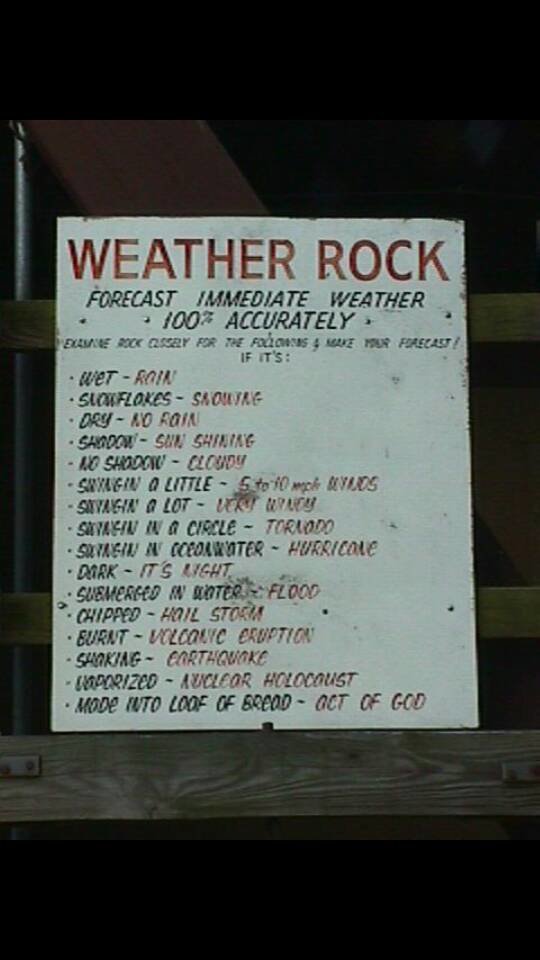 WEATHER ROCK
FORECAST IMMEDIATE WEATHER
100% ACCURATELY
EXAMINE ROCK CLOSELY FOR THE FOLLOWING & MAKE YOUR FORECAST!
IF IT'S:
• WET - RAIN
• SNOWFLAKES - SNOWING
• DRY - NO RAIN
• SHADOW - SUN SHINING
• NO SHADOW - CLOUDY
• SWINGIN A LITTLE - 5 to 10 mph WINDS
• SWINGIN A LOT - VERY WINDY
• SWINGIN IN A CIRCLE - TORNADO
• SWINGIN IN OCEANWATER - HURRICANE
• DARK - IT'S NIGHT
• SUBMERGED IN WATER - FLOOD
• CHIPPED - HAIL STORM
• BURNT - VOLCANIC ERUPTION
• SHAKING - EARTHQUAKE
• VAPORIZED - NUCLEAR HOLOCAUST
• MADE INTO LOAF OF BREAD - ACT OF GOD